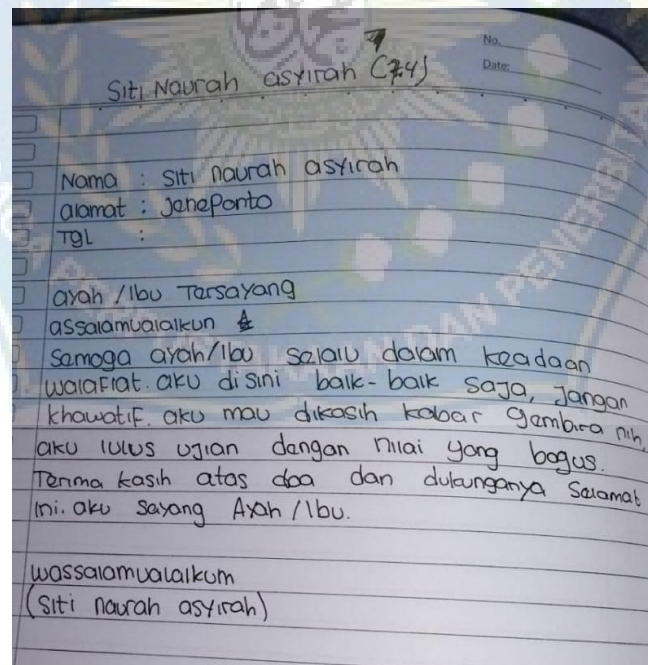 No.
Date:
7
Siti Naurah asyirah (7.4)
Nama : Siti naurah asyirah
alamat : Jeneponto
TgL :
ayah / Ibu Tersayang
assalamualaikun
Semoga ayah/Ibu selalu dalam keadaan
walafiat. aku di sini baik-baik saja, Jangan
khawatif. aku mau dikasih kabar gembira nih,
aku lulus ujian dengan nilai yang bagus.
Terima kasih atas doa dan dukunganya Selamat
ini. aku sayang Ayah / Ibu.
wassalamualaikum
(Siti naurah asyirah)